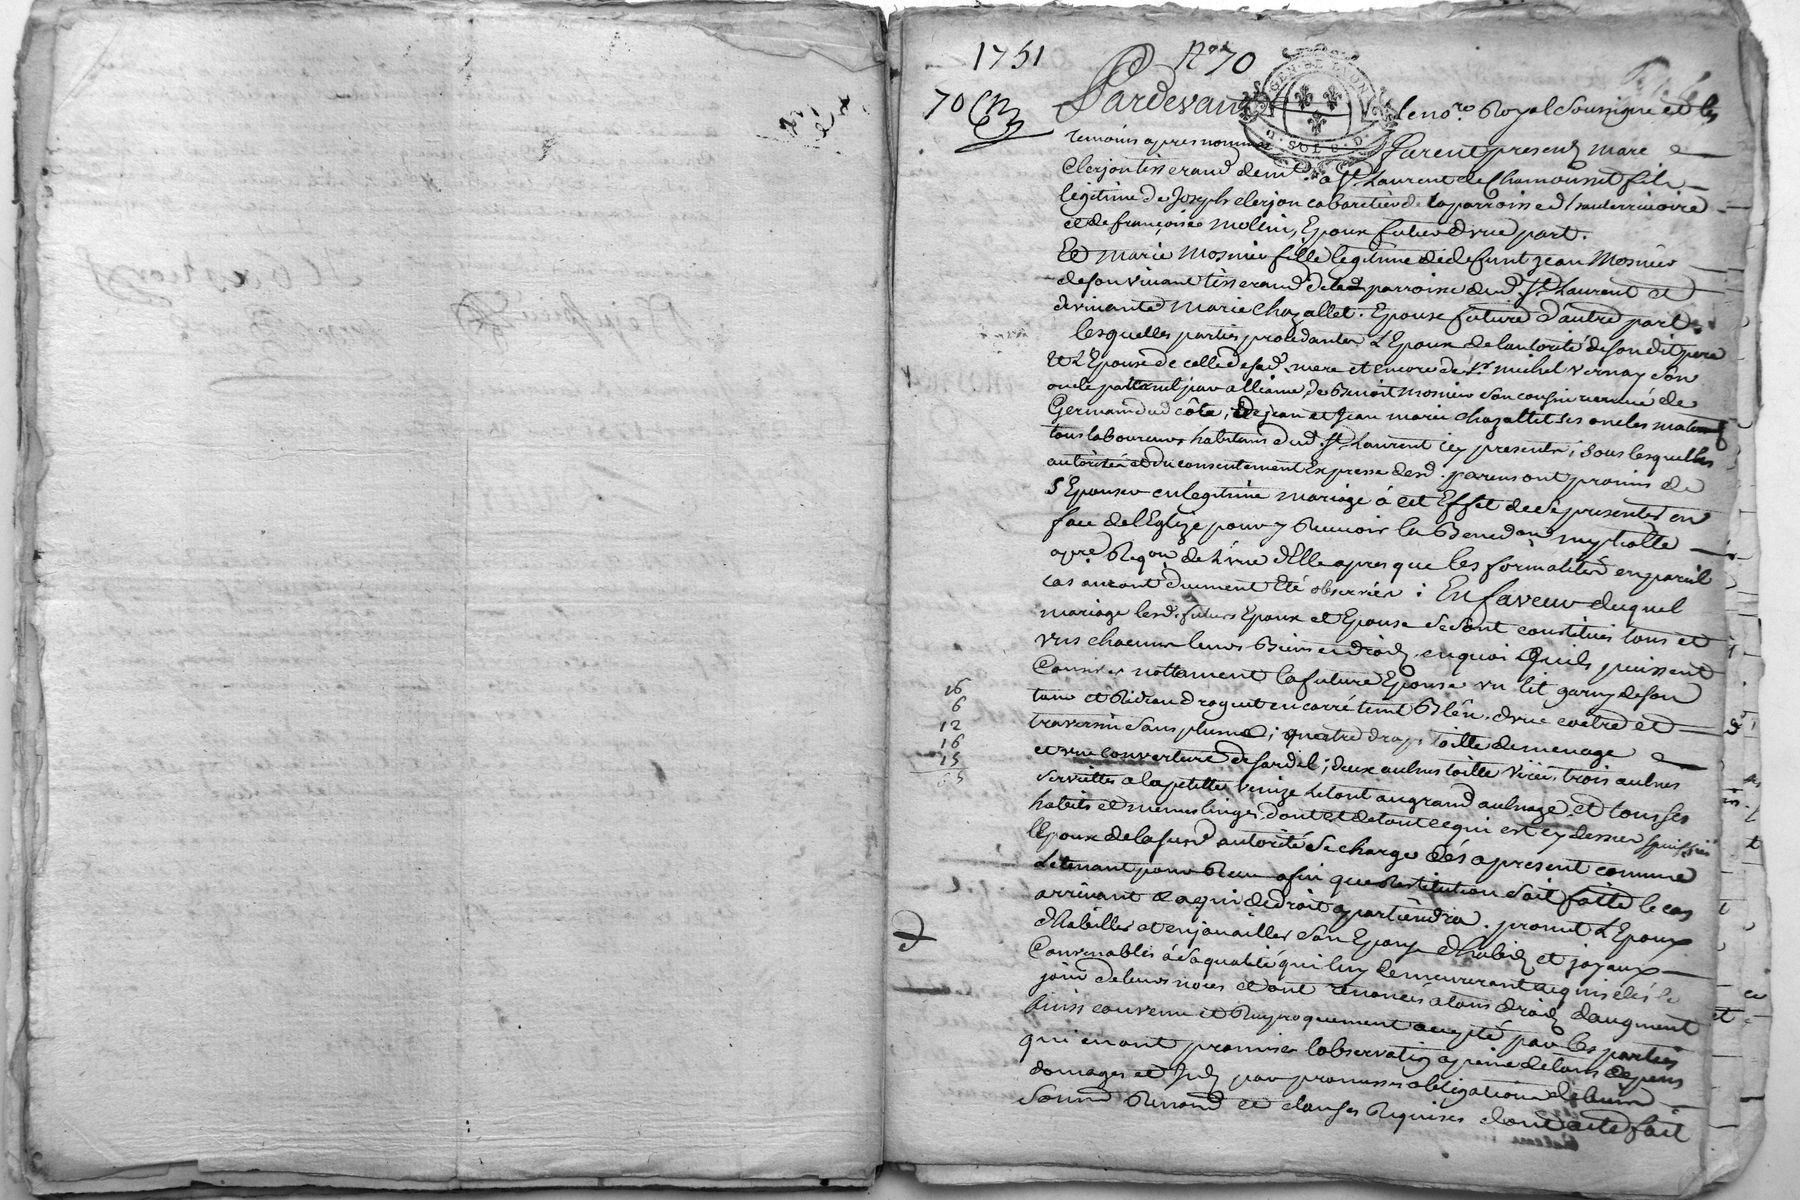 1751 N° 70
70 Cm
GEN. DE LYON
SOLS
Pardevant le no.re Royal Soussigné et les
temoins apres nommés furent presents marc
Clerjon tisserand dem.t a S.t Laurent de Chamousset fils
légitime de Joseph clerjon cabaretier de la parroisse d'hauterivoire
et de françoise molin, Epoux futur d'une part.
Et marie Mosnier fille legitime de defunt jean Mosnier
de son vivant tisserand de lad. parroisse dud. S.t Laurent et
de vivante Marie Chazallet. Epouse future d'autre part,
lesquelles parties procedantes L'Epoux de l'autorité de son dit pere
et L'Epouse de celle de sad. mere et encore de S.r michel Vernay son
oncle paternel par alliance, de Benoit Mosnier son cousin
Germain dud. côté, de jean et Jean marie chazallet ses oncles maternels
tous laboureurs habitans dud. S.t Laurent icy presents; sous lesquelles
autorités et du consentement Expresse desd. parens ont promis de
s'Epouser en legitime mariage à cet Effet de se presenter en
face de l'Eglize pour y Recevoir la Bened.on nuptialle
apres Req.on de L'une d'Elle apres que les formalités en pareil
cas auront duement Eté observées : En faveur duquel
mariage lesd. futurs Epoux et Epouse se sont constitués tous et
uns chacuns leurs Biens et droits, en quoi qu'ils puissent
Consister nottament la future Epouse un lit garny de son
tour et Rideau droguet en carré teint Bleu, d'une coetre et
traversin sans plume; quatre draps toille de menage
et une couverture de sardil; deux aulnes toille, trois aulnes
serviettes a la petitte Venize Le tout au grand aulnage et tous ses
habits et menus linges, dont et de tout ce qui est cy dessus
l'Epoux de la susd. autorité se charge dés a present comme
Le tenant pour Recu afin que Restitution soit faitte le cas
arrivant a qui de droit apartiendra. promet L'Epoux
d'habiller et enjouailler son Epouse d'habits et joyaux
Convenables à sa qualité qui luy demeureront acquis dés le
jour de leurs noces et ont renoncés a tous droits d'augment
Ainsi convenu et Reciproquement accepté par les parties
qui en ont promis l'observation a peine de tous depens
domages et Int.s par promesses obligation de biens
Soum.on Renon.on et clauses Requises dont acte fait
16
6
12
16
15
65